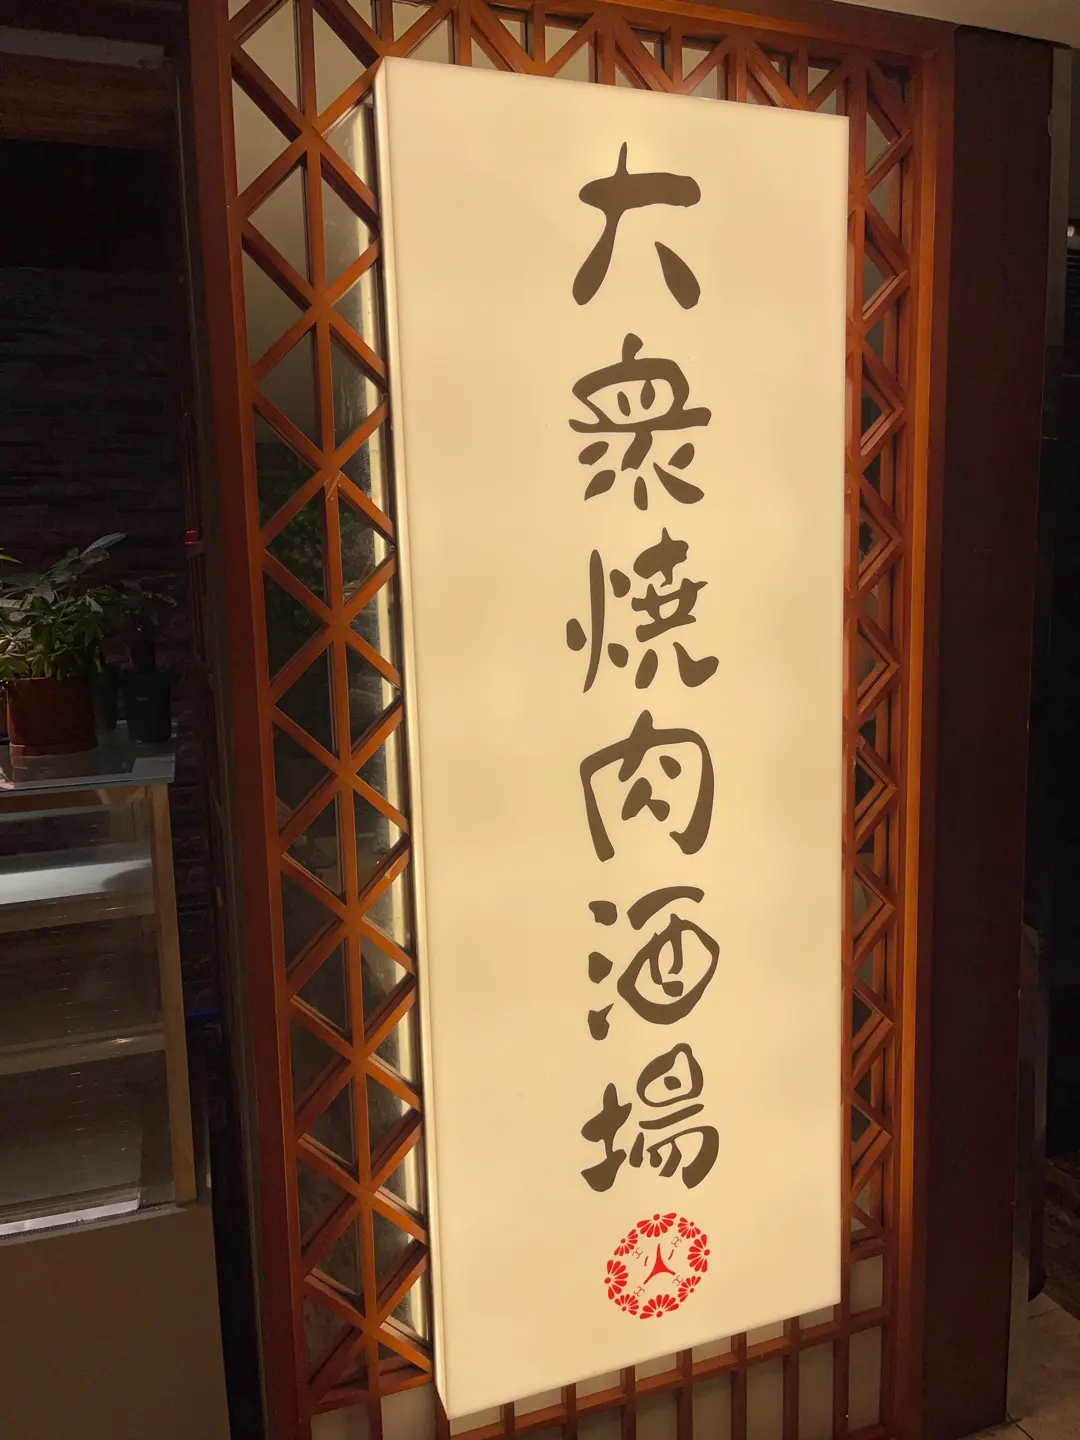 大衆焼肉酒場
火